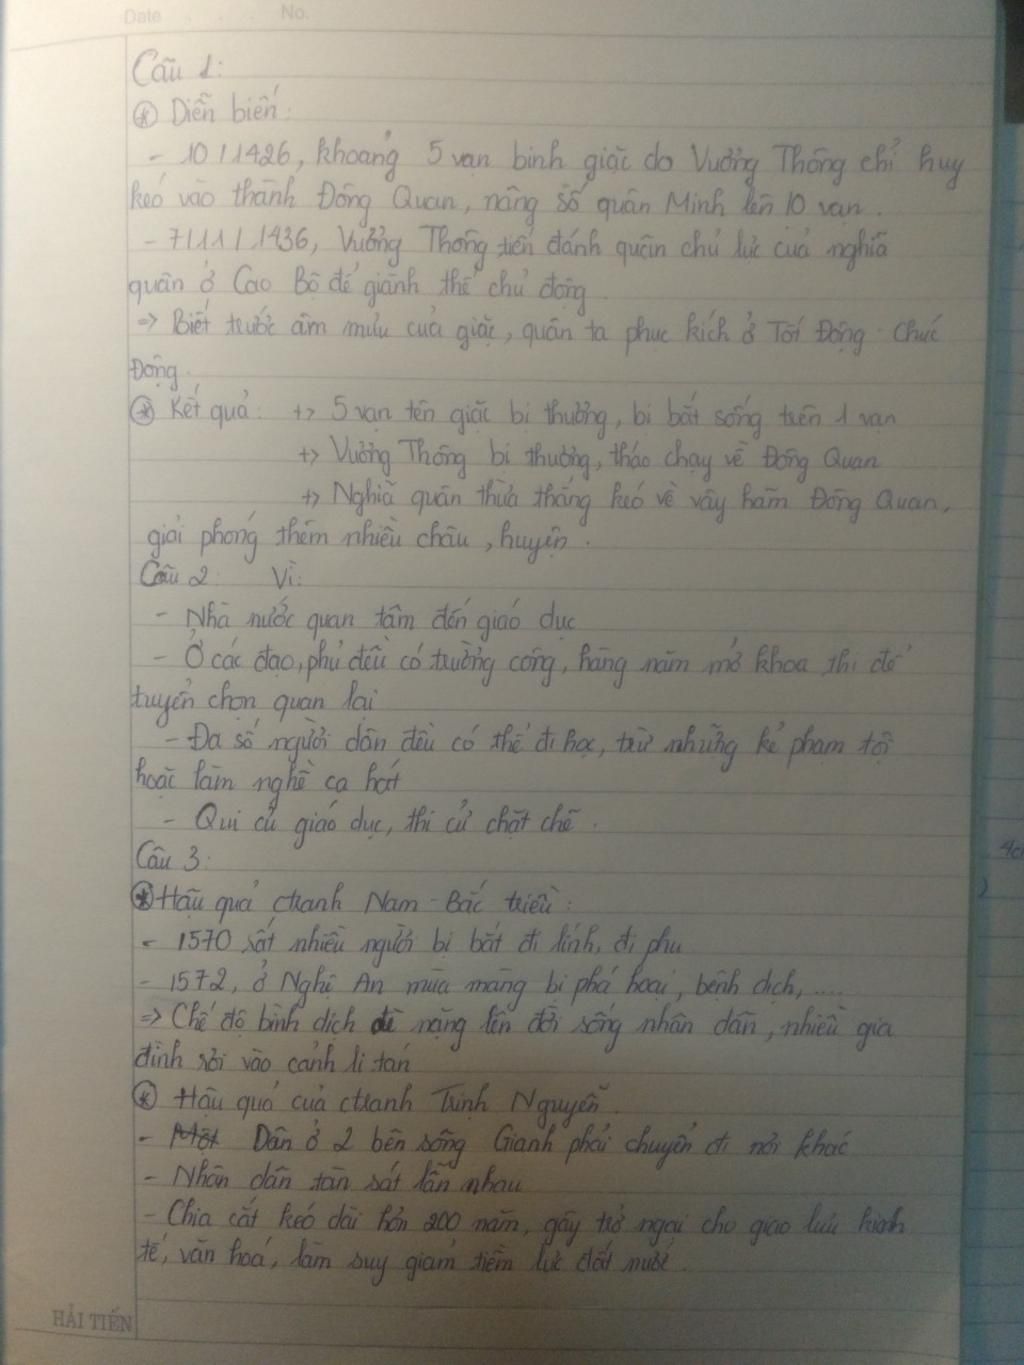 Date No.
Câu 1:
* Diễn biến:
- 10/1426, khoảng 5 vạn binh giặc do Vương Thông chỉ huy
kéo vào thành Đông Quan, nâng số quân Minh lên 10 vạn.
- 7/11/1436, Vương Thông tiến đánh quân chủ lực của nghĩa
quân ở Cao Bộ để giành thế chủ động.
=> Biết trước âm mưu của giặc, quân ta phục kích ở Tốt Động - Chúc
Động.
* Kết quả: +> 5 vạn tên giặc bị thương, bị bắt sống trên 1 vạn
+> Vương Thông bị thương, tháo chạy về Đông Quan
+> Nghĩa quân thừa thắng kéo về vây hãm Đông Quan,
giải phóng thêm nhiều châu, huyện.
Câu 2: Vì:
- Nhà nước quan tâm đến giáo dục
- Ở các đạo, phủ đều có trường công, hàng năm mở khoa thi để
tuyển chọn quan lại
- Đa số người dân đều có thể đi học, trừ những kẻ phạm tội
hoặc làm nghề ca hát
- Qui củ giáo dục, thi cử chặt chẽ.
Câu 3:
* Hậu quả ctranh Nam - Bắc triều:
- 1570 rất nhiều người bị bắt đi lính, đi phu
- 1572, ở Nghệ An mùa màng bị phá hoại, bệnh dịch, ....
=> Chế độ binh dịch đè nặng lên đời sống nhân dân, nhiều gia
đình rơi vào cảnh li tán
* Hậu quả của ctranh Trịnh Nguyễn.
- Một Dân ở 2 bên sông Gianh phải chuyển đi nơi khác
- Nhân dân tàn sát lẫn nhau
- Chia cắt kéo dài hơn 200 năm, gây trở ngại cho giao lưu kinh
tế, văn hoá, làm suy giảm tiềm lực đất nước.
HẢI TIẾN